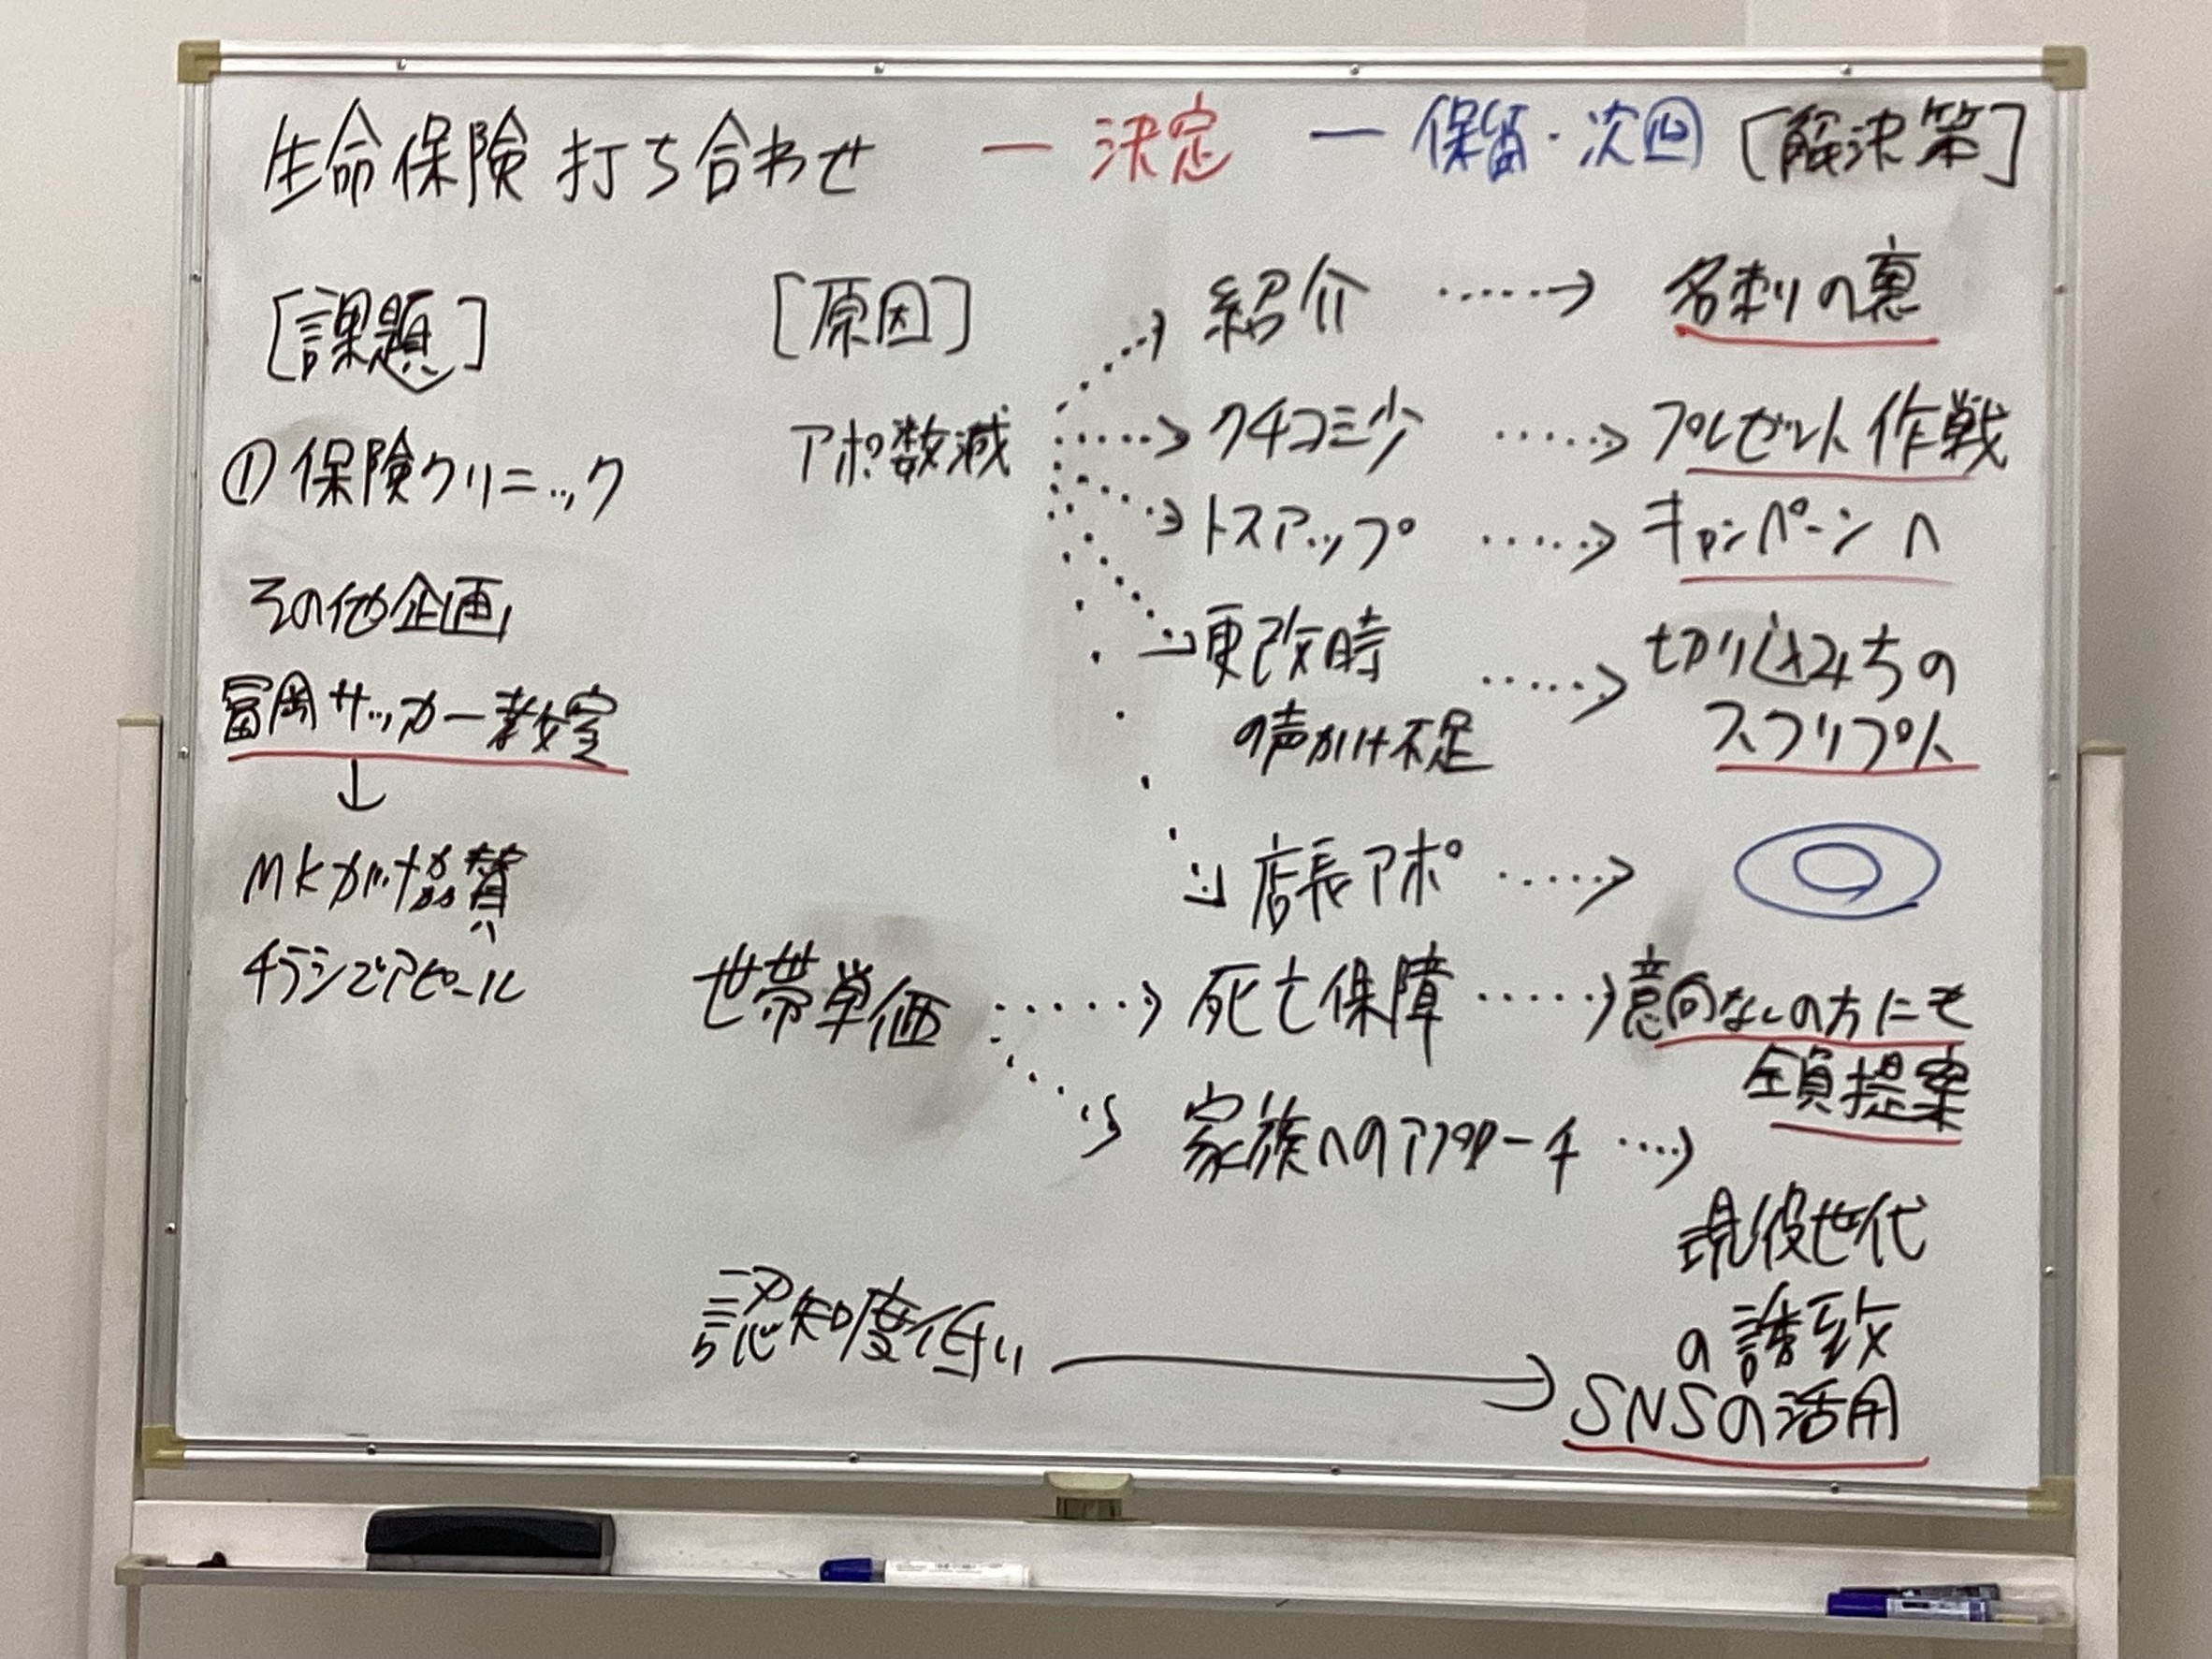 生命保険 打ち合わせ ー 決定 ー 保留・次回 [解決策]
[課題]
① 保険クリニック
その他企画
冨岡サッカー教室
↓
MKが协賛
チラシでアピール
[原因]
アポ数減
紹介 ……→ 名刺の裏
クチコミ少 ……→ プレゼント作戦
トスアップ ……→ キャンペーンへ
更改時
の声かけ不足 ……→ 切り込み方の
スクリプト
店長アポ ……→ ◎
世帯単価 ……→ 死亡保障 ……→ 意向なしの方にも
全員提案
家族へのアプローチ …→
現役世代
の誘致
認知度低い → SNSの活用